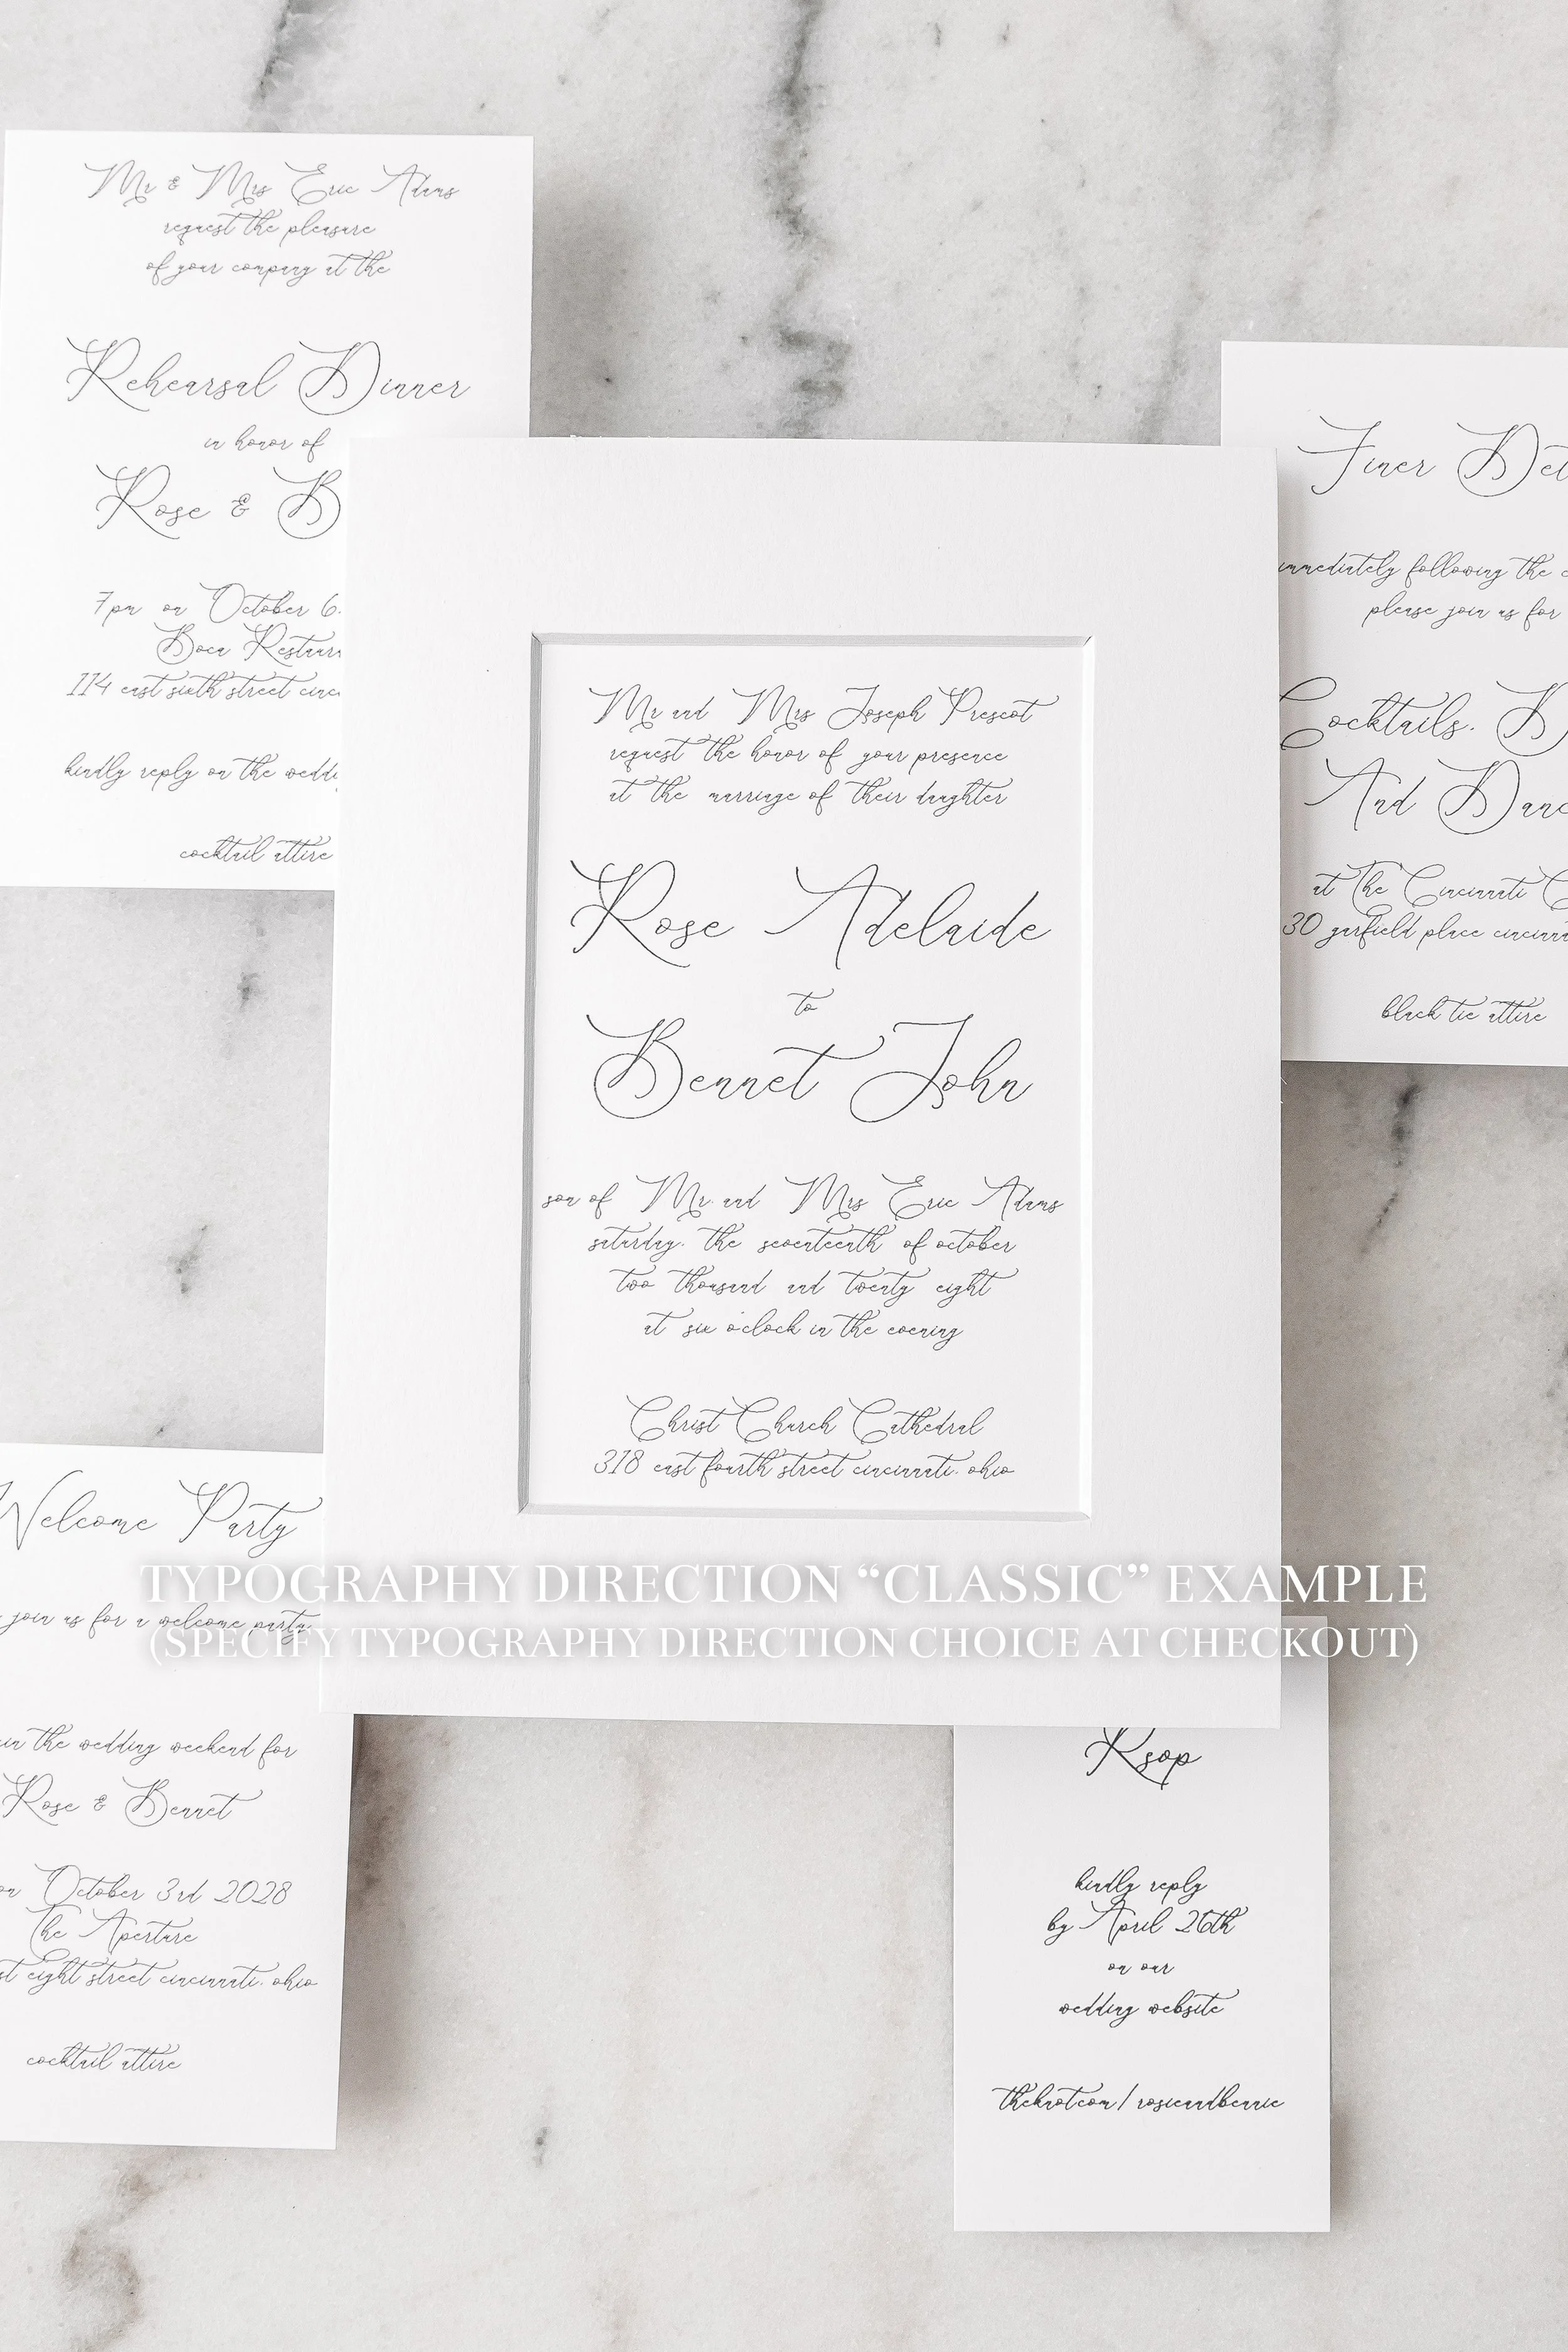 Mr & Mrs Eric Adams
request the pleasure
of your company at the
Rehearsal Dinner
in honor of
Rose & B
7pm on October 6
Boca
114 east sixth street
kindly reply on the
cocktail attire
Finer
immediately following the
please join us for
Cocktails.
And
at The Cincinnati
30 garfield place
black tie attire
Mr and Mrs Joseph Prescot
request the honor of your presence
at the marriage of their daughter
Rose Adelaide
to
Bennet John
son of Mr. and Mrs Eric Adams
saturday. the seventeenth of october
two thousand and twenty eight
at six o'clock in the evening
Christ Church Cathedral
318 east fourth street cincinnati. ohio
Welcome Party
join us for a welcome party
in the wedding weekend for
Rose & Bennet
on October 3rd 2028
The Aperture
eight street cincinnati. ohio
cocktail attire
TYPOGRAPHY DIRECTION “CLASSIC” EXAMPLE
(SPECIFY TYPOGRAPHY DIRECTION CHOICE AT CHECKOUT)
Rsvp
kindly reply
by April 26th
on our
wedding website
theknot.com/rosieandbennie